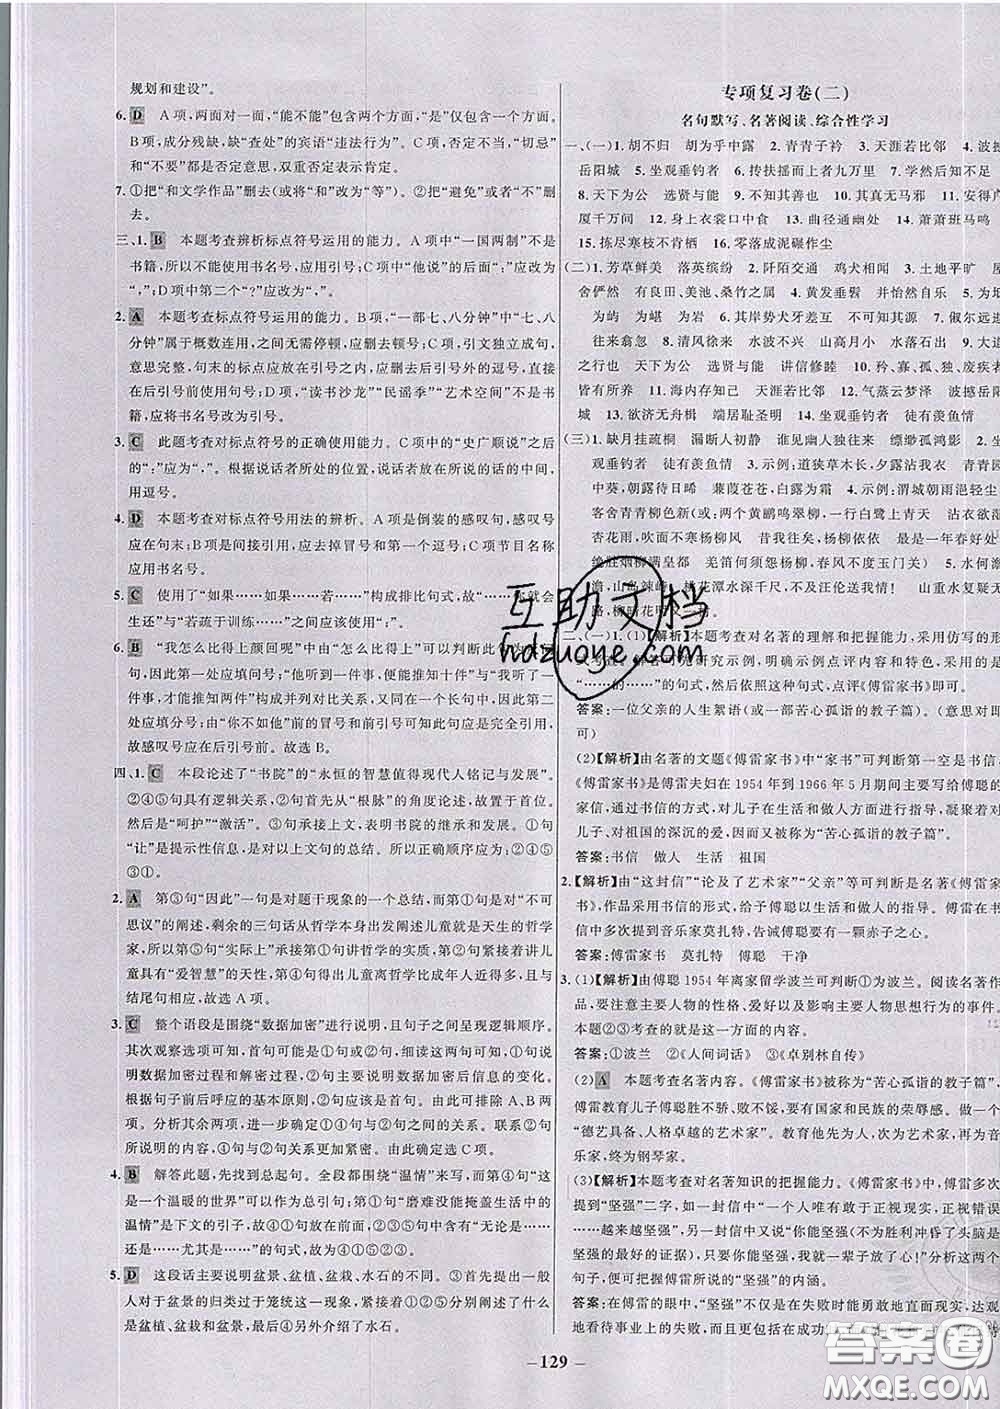 规划和建设”。
6. D　A项,两面对一面,“能不能”包含两个方面,“是”仅包含一个方面。
B项,成分残缺,缺“查处”的宾语“违法行为”。C项,不当,“切忌”
和“不要”都是否定意思,双重否定表示肯定。
7. ①把“和文学作品”删去(或将“和”改为“等”)。②把“避免”或者“不”删
去。
三、1. B　本题考查辨析标点符号运用的能力。A项中“一国两制”不是
书籍,所以不能使用书名号,应用引号;C项中“他说”的后面“:”应改为
“,”;D项中第二个“?”应改为“,”。
2. A　本题考查标点符号运用的能力。B项,“一部七、八分钟”中“七、八
分钟”属于概数连用,二者间无需停顿,应删去顿号;C项,引文独立成句,
意思完整,句末的标点应放在后引号之前,应删去后引号外的逗号,
在后引号前使用句号;D项,“读书沙龙”“民谣季”“艺术空间”不是书
籍,应将书名号改为引号。
3. C　此题考查对标点符号的正确使用能力。C项中的“史广顺说”之后
的“:”应为“,”。根据说话者所处的位置,说话者在所说的话的中间,
用逗号。
4. D　本题考查对标点符号用法的辨析。A项是倒装的感叹句,感叹号
应在句末;B项是间接引用,应去掉冒号和第一个逗号;C项节目名称
应用书名号。
5. C　使用了“如果……如果……若……”构成排比句式,因此“就会有
生还”与“若疏于训练……”之间应该使用“;”。
6. B　“我怎么比得上颜回呢”中由“怎么比得上”可以判断此句为反问
句,因此第一处应填问号;“他听到一件事,就能推知十件”与“我听了一
件事,才能推知两件”构成并列对比关系,又同在一个长句中,因此第二
处应填分号;由“你不如他”前的冒号和前引号可知此句应是完全引用,
故感叹号应在后引号前。故选B。
四、1. C　本段论述了“书院”的“永恒的智慧值得现代人铭记与发展”。
②④⑤句具有逻辑关系,②句首先从“根脉”的角度论述,最为概括。
然后是“呵护”“激活”。③句承接上文,表明书院的继承和发展。①句
“让”是提示性信息,是对未来书院发展的期望。故正确顺序是②④⑤
③①。
2. A　第③句“因此”一句是对题干现象的一个总结,而且是对“不可
思议”的阐述,剩余的三句话从哲学本身出发阐述儿童就是天生的哲学
家。第④句“实际上”承接第①句讲哲学的实质,第②句紧接着讲儿
童具有“爱智慧”的天性,然后引出儿童离哲学比成年人近得多。且与
结尾句相应,故选A项。
3. C　整个语段是围绕“数据加密”进行说明,且句子之间呈现逻辑顺序。
其次观察选项可知,首句为①句或②句,细读这两句可以发现,①句说
明数据加密过程和解密过程,②句主要说明数据加密的基本思想,从文
章句子前后呼应的基本原则,②句应该是首句。由此可排除A、B两
项。分析其余两项,主要是③句和④句的顺序问题,通过比较③④句
所说明的内容,④句与②句关系更加紧密。由此确定选C项。
4. B　解答此题,先找到总起句。全段都围绕“温情”来写,而第④句“这
是一个温暖的世界”可以作为总领,第①句“磨难没能掩盖生活中的
温情”是下文的引子,故作为第二句,而②③⑤句中含有“无论是……
还是……尤其是……”的句式,故为④①②⑤③。
5. D　这段话主要说明盆景、盆植、盆栽、水石的不同。③首先提出一般
人对于盆景的归类过于笼统这一现象,②①⑤紧接着说明了什么
是盆植、盆栽和盆景,最后④另外介绍了水石。
专项复习卷(二)
名句默写、名著阅读、综合性学习
一、(一)1. 胡不归　胡为乎中露　2. 青青子衿　3. 天涯若比邻　4. 波撼
岳阳城　5. 坐观垂钓者　6. 抟扶摇而上者九万里　7. 然后知不足
8. 天下为公　选贤与能　9. 不知其善也　10. 其真无马邪　11. 安得广
厦千万间　12. 身上衣裳口中食　13. 曲径通幽处　14. 萧萧班马鸣
15. 拣尽寒枝不肯栖　16. 零落成泥碾作尘
(二)1. 芳草鲜美　落英缤纷　2. 阡陌交通　鸡犬相闻　3. 土地平旷　屋
舍俨然　有良田、美池、桑竹之属　4. 黄发垂髫　并怡然自乐　5. 为坻
为屿　为嵁　为岩　6. 其岸势犬牙差互　不可知其源　7. 俶尔远逝
往来翕忽　8. 清风徐来　水波不兴　山高月小　水落石出　9. 大道
之行也　天下为公　选贤与能　讲信修睦　10. 矜、寡、孤、独、废疾者
皆有所养　11. 海内存知己　天涯若比邻　12. 气蒸云梦泽　波撼岳阳
城　13. 欲济无舟楫　端居耻圣明　14. 坐观垂钓者　徒有羡鱼情
(三)1. 缺月挂疏桐　漏断人初静　谁见幽人独往来　缥缈孤鸿影　2. 坐
观垂钓者　徒有羡鱼情　3. 示例:道狭草木长,夕露沾我衣　青青园
中葵,朝露待日晞　蒹葭苍苍,白露为霜　4. 示例:渭城朝雨浥轻尘,
客舍青青柳色新(或两个黄鹂鸣翠柳,一行白鹭上青天　沾衣欲湿
杏花雨,吹面不寒杨柳风　昔我往矣,杨柳依依　最是一年春好处,
绝胜烟柳满皇都　羌笛何须怨杨柳,春风不度玉门关)　5. 水何澹
澹,山岛竦峙　桃花潭水深千尺,不及汪伦送我情!　山重水复疑无
路,柳暗花明又一村
二、(一)1. (1)【解析】本题考查对名著的理解和把握能力,采用仿写的形
式考查,解答可先研究示例,明确示例点评内容和特色,采用的是
“……的……”的句式,然后依照这种句式,点评《傅雷家书》即可。
答案:一位父亲的人生絮语(或一部苦心孤诣的教子篇)。(意思对即
可)
(2)【解析】由名著的文题《傅雷家书》中“家书”可判断第一空是书信。
《傅雷家书》是傅雷夫妇在1954年到1966年5月期间主要写给傅聪的
家信,以书信的方式,对儿子在生活和做人方面进行指导,凝聚着对
儿子、对祖国的深沉的爱,因而又可以被称为“苦心孤诣的教子篇”。
答案:书信　做人　生活　祖国
2.【解析】由“这封信”“论及了艺术家”“父亲”等可判断是名著《傅雷家
书》,作品采用书信的形式,给予傅聪以生活和做人的指导。傅雷在书
信中多次提到音乐家莫扎特,告诫傅聪,要有一颗赤子之心。
答案:傅雷家书　莫扎特　傅聪　干净
3. (1)【解析】由傅聪1954年离家留学波兰可判断①为波兰。阅读名著作
品,要注意主要人物的性格、爱好以及影响主要人物思想行为的事件,
本题②③考查的就是这一方面的内容。
答案:①波兰　②《人间词话》　③《卓别林自传》
(2) A　本题考查名著内容。《傅雷家书》被称为“苦心孤诣的教子篇”,
傅雷教育儿子傅聪胜不骄、败不馁,要有国家和民族的荣辱感。做一个
“德艺具备、人格卓越的艺术家”。教育他新中国成立后,不是作为音
乐家,终成为钢琴家。
(3)【解析】本题考查对名著知识的把握能力。《傅雷家书》中,傅雷多次
提到“坚强”二字,一封信中提到“一个人唯有敢于正视现实,正视错误
……越来越坚强”,另一封信中又说“你能坚强(不为胜利冲昏了头脑是
坚强的最好的证据),只要你能坚强,我就一辈子放了心!”分析这两个
句子,即可把握傅雷所说的“坚强”的内涵。
答案:在傅雷的眼中,“坚强”不仅是在失败时能勇敢地直面现实,达观
地看待事业上的失败,而且更包括在成功
129
互助文档
hdzuoye.com
答案圈
MXQE.COM